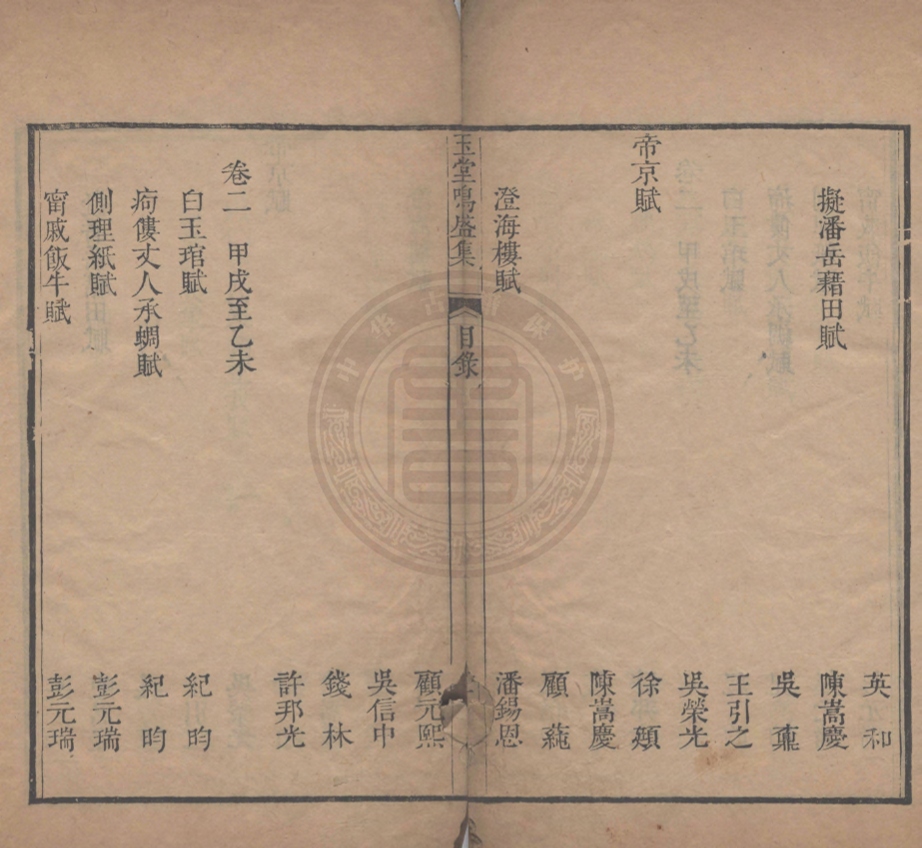 英和
擬潘岳藉田賦 陳嵩慶
吳鼒
王引之
吳榮光
帝京賦 徐頲
陳嵩慶
顧蒓
澄海樓賦 潘錫恩
玉堂鳴盛集 目錄
顧元熙
吳信中
錢林
許邦光
卷二 甲戌至乙未
白玉琯賦 紀昀
痀僂丈人承蜩賦 紀昀
側理紙賦 彭元瑞
甯戚飯牛賦 彭元瑞